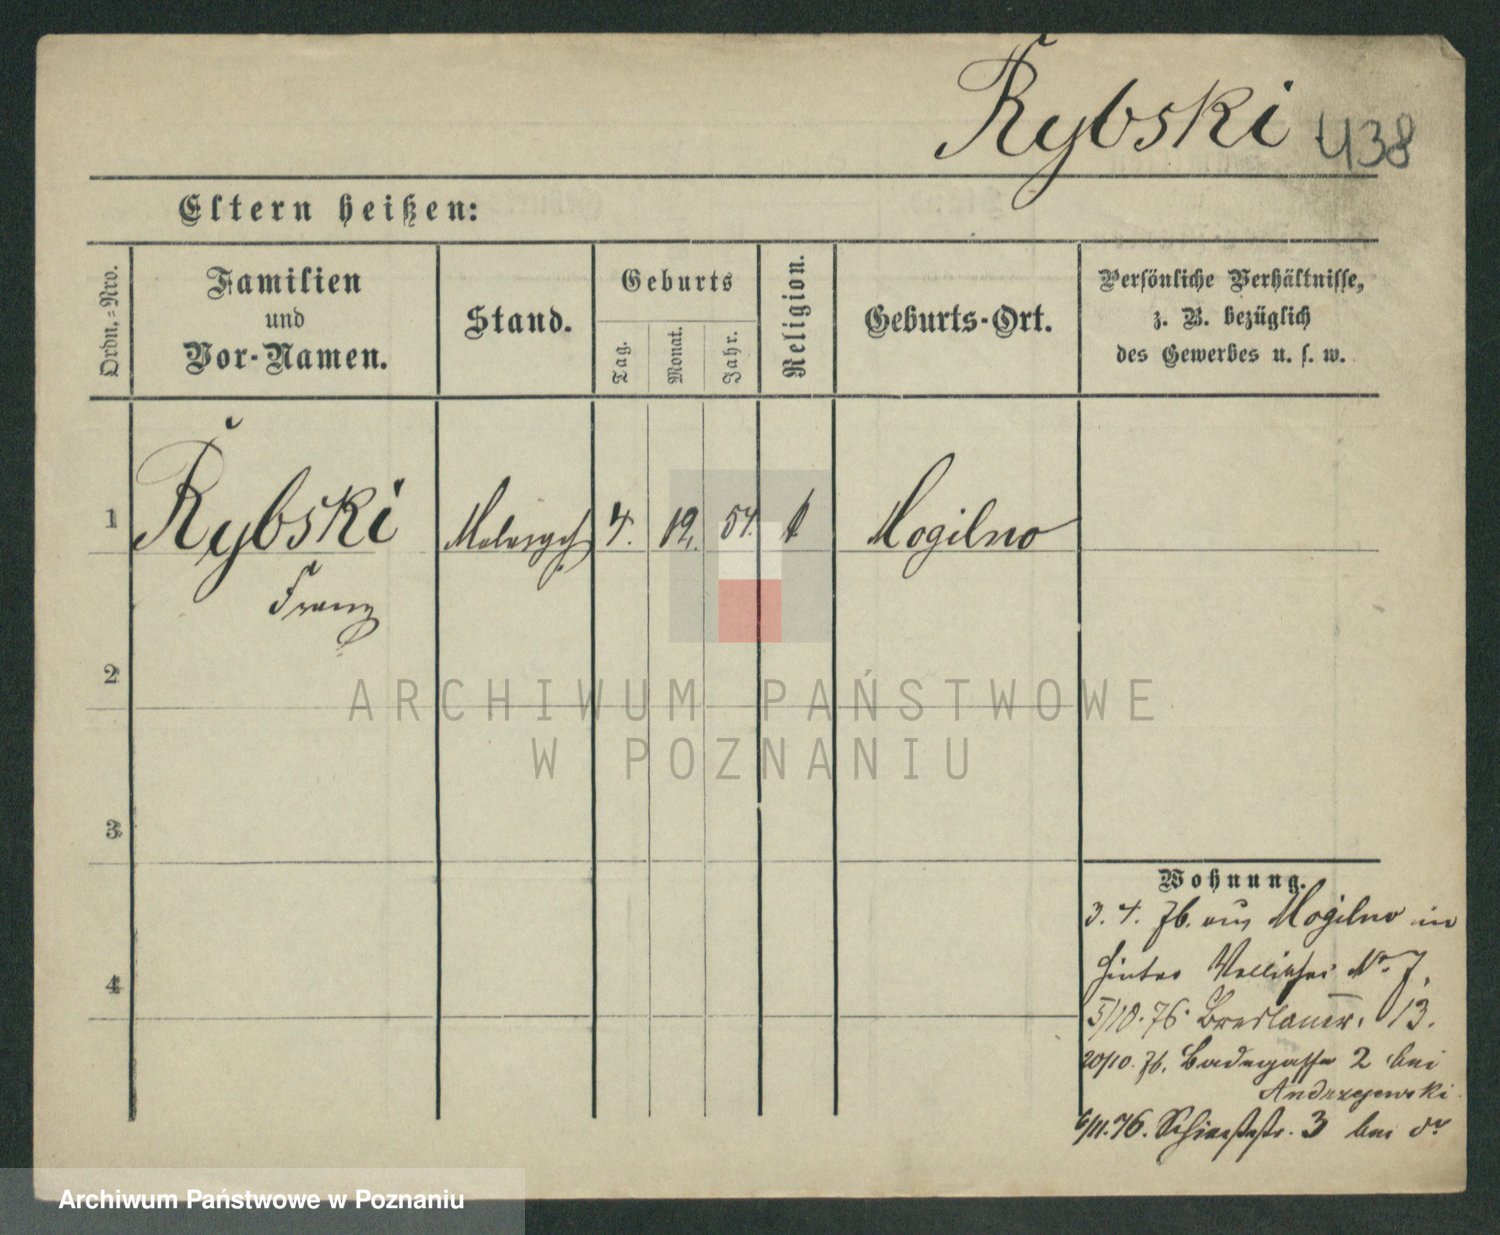 Rybski 438
Eltern heißen:
Ordn.=Nro.
Familien
und
Vor-Namen.
Stand.
Geburts
Tag.
Monat.
Jahr.
Religion.
Geburts-Ort.
Persönliche Verhältnisse,
z. B. bezüglich
des Gewerbes u. s. w.
1 Rybski 4. 12. 54. Mogilno
Franz
2
ARCHIWUM PAŃSTWOWE
W POZNANIU
3
4
Wohnung.
3. 4. 76. aus Mogilno in
Hinter Wallischei No. 7.
5/10. 76. Breslauerstr. 13.
20/10. 76. Badegasse 2 bei
Andrzejewski
6/11. 76. Schiesstr. 3 bei do
Archiwum Państwowe w Poznaniu